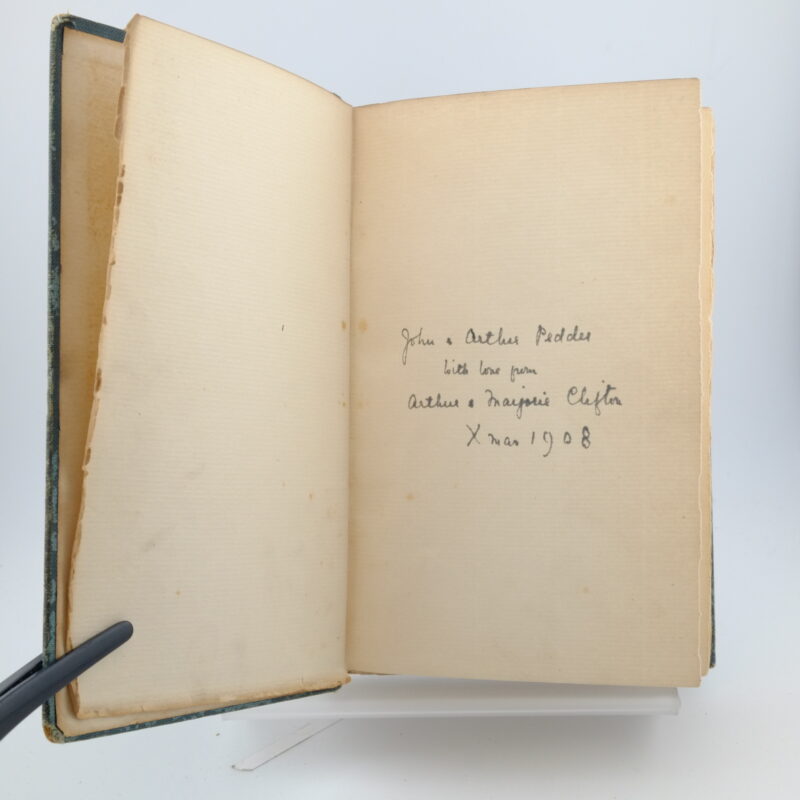 John & Arthur Pedder
With love from
Arthur & Marjorie Clifton
Xmas 1908